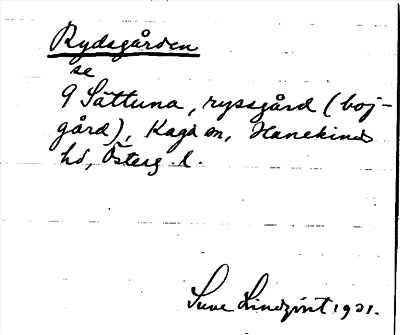 Rydsgården
se
9 Sättuna, ryssgård (boj-
gård), Kaga sn, Hanekinds
hd, Österg. l.
Sune Lindqvist 1921.